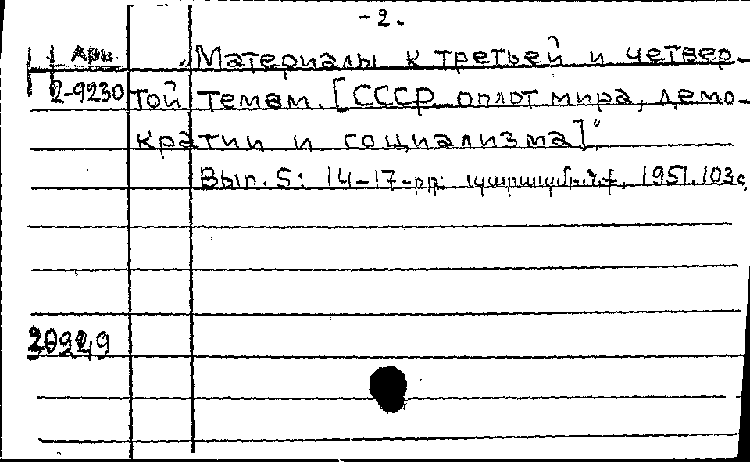 -2.
Арм. „Материалы к третьей и четвер-
2-9230 той темам. [СССР оплот мира, демо-
кратии и социализма]"
Вып. 5: 14-17-րդ. 1951. 103с
20929